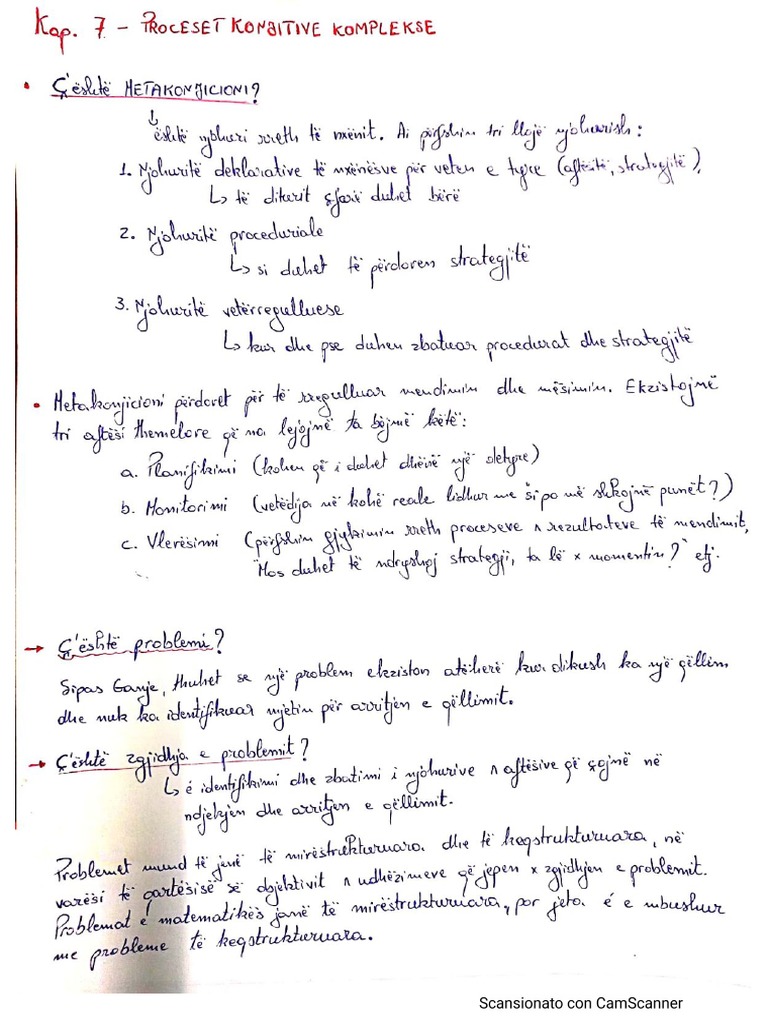 Kap. 7 - PROCESET KONJITIVE KOMPLEKSE
• Ç'është METAKONJICIONI?
↳ është njohuri rreth të nxënit. Ai përfshin tri lloje njohurish:
1. Njohuritë deklarative të nxënësve për veten e tyre (aftësitë, strategjitë),
↳ të diturit çfarë duhet bërë
2. Njohuritë proceduriale
↳ si duhet të përdoren strategjitë
3. Njohuritë vetërregulluese
↳ kur dhe pse duhen zbatuar procedurat dhe strategjitë
• Metakonjicioni përdoret për të rregulluar mendimin dhe mësimin. Ekzistojnë
tri aftësi themelore që na lejojnë ta bëjmë këtë:
a. Planifikimi (kohën që i duhet dhënë një detyre)
b. Monitorimi (vetëdija në kohë reale lidhur me "si po më shkojnë punët?)
c. Vlerësimi (përfshin gjykimin rreth proceseve ∧ rezultateve të mendimit,
"Mos duhet të ndryshoj strategji, ta lë x momentin?" etj.
→ Ç'është problemi?
Sipas Ganje, thuhet se një problem ekziston atëherë kur dikush ka një qëllim
dhe nuk ka identifikuar mjetin për arritjen e qëllimit.
→ Ç'është zgjidhja e problemit?
↳ é identifikimi dhe zbatimi i njohurive ∧ aftësive që çojnë në
ndjekjen dhe arritjen e qëllimit.
Problemet mund të jenë të mirëstrukturuara dhe të keqstrukturuara, në
varësi të qartësisë së objektivit ∧ udhëzimeve që jepen x zgjidhjen e problemit.
Problemat e matematikës janë të mirëstrukturuara, por jeta é e mbushur
me probleme të keqstrukturuara.
Scansionato con CamScanner